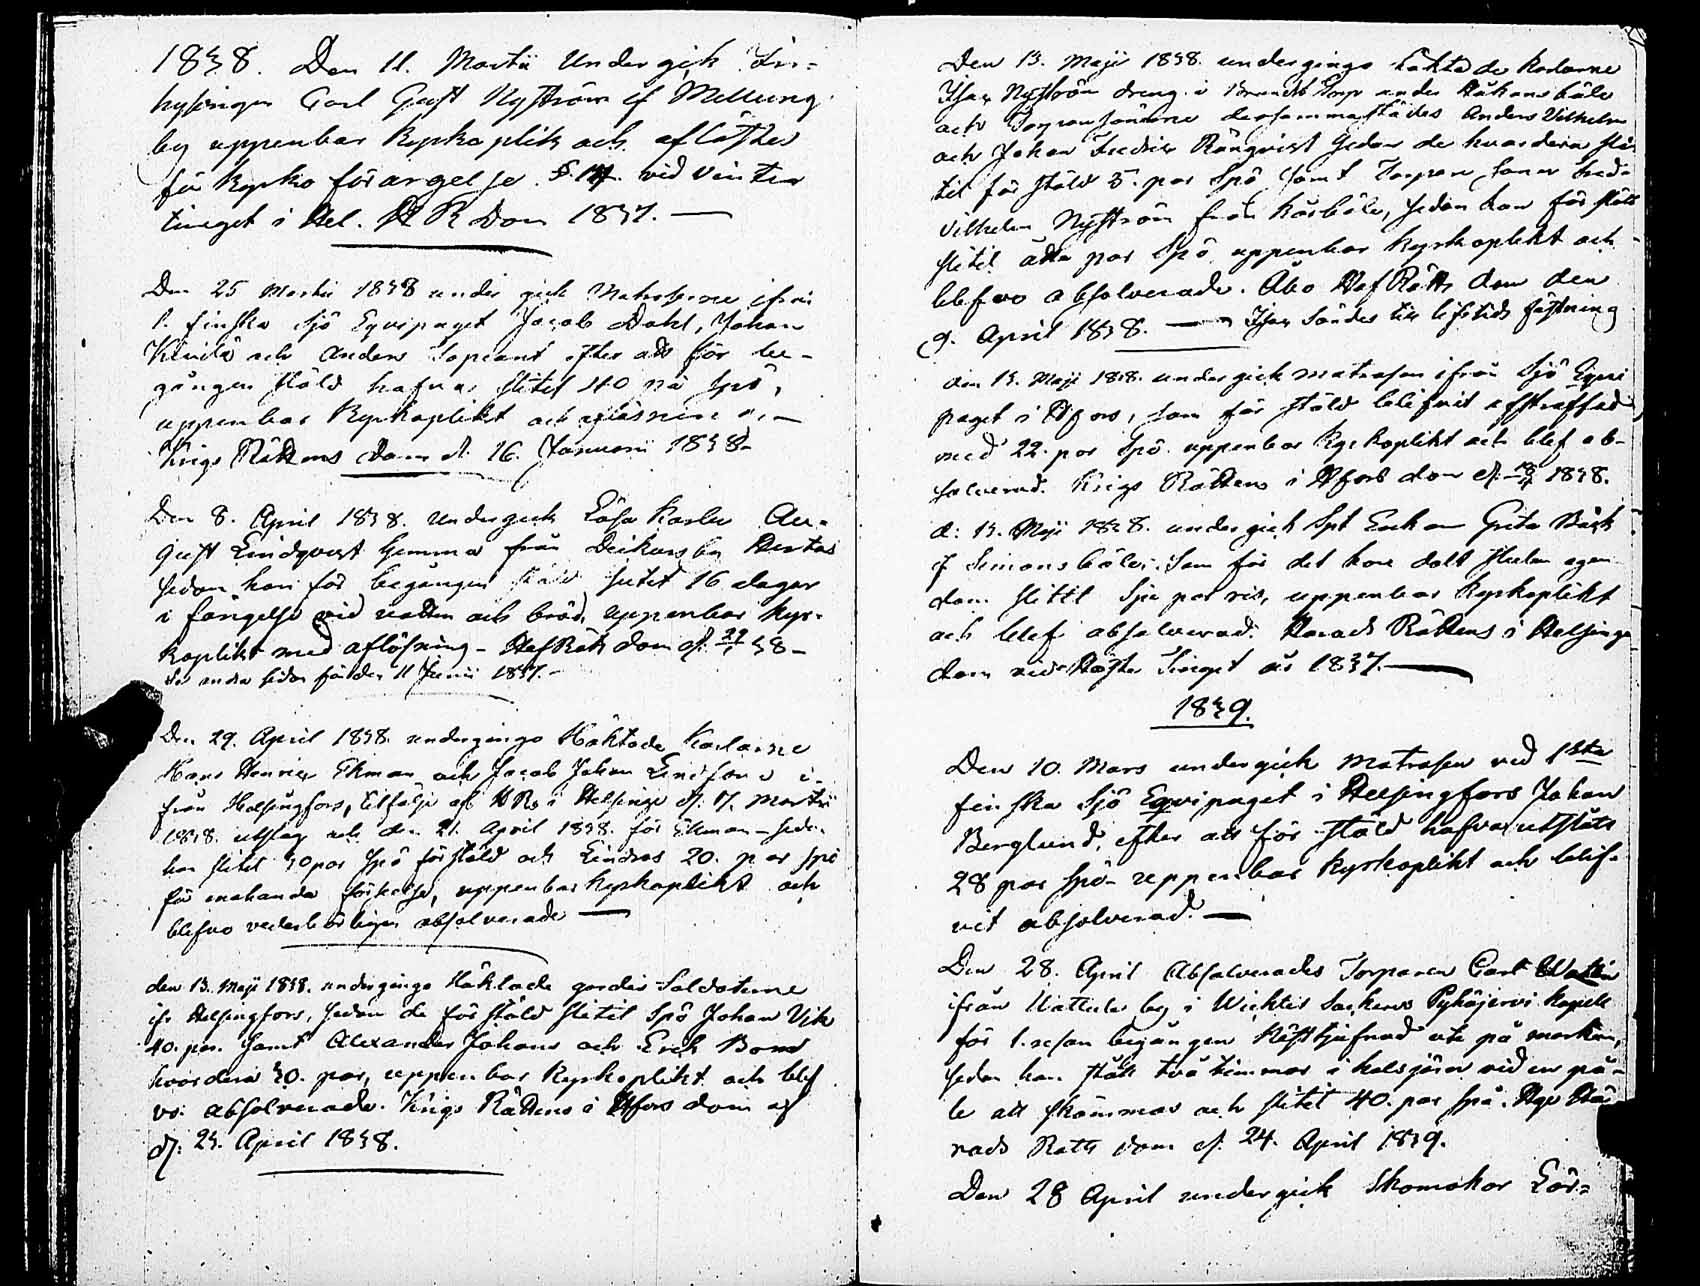 1838. Den 11. Martii Undergick In-
hysingen Carl Gust Nyström af Mellung
by uppenbar kyrkoplikt och aflöstes
för kyrko förargelse vid vinter
tinget i Hel. H R Dom 1837.
Den 25 Martii 1838 under gick Matroserne ifrån
1. finska Sjö Equipaget Jacob Dahl, Johan
och Anders efter att för be-
gången stöld hafva slitit 40 par spö,
uppenbar Kyrkoplikt och
Krigs Rättens dom d. 16. Januarii 1838-
Den 8. April 1838. undergick Lösa Karlen Au-
gust Lindqvist hemma från by
sedan han för begången stöld sutit 16 dagar
i fängelse vid vatten och bröd, uppenbar kyr-
koplikt med aflösning - HofRätts dom
se andra sidan för den 11 Junii 1837.-
Den 29. April 1838. undergingo Häktade Karlarne
Hans Henric Ekman och Jacob Johan Lindfors i-
från Helsingfors, i Helsinge d. 17. Martii
1838. utslag och den 21. April 1838. för Ekman - sedan
han slitit 30 par spö för stöld och Lindfors 20. par spö
för enahanda förseelse, uppenbar kyrkoplikt och
blefvo vederbörligen absolverade
den 13. Maji 1838. undergingo Häktade gardes Soldaterne
ifr Helsingfors, sedan de för stöld slitit Spö Johan Vik
40. par. samt Alexander Johans och Erik Bond
hvardera 30. par, uppenbar kyrkoplikt och blef
vo absolverade. Krigs Rättens i Hfors dom af
d: 23. April 1838.
Den 13. Maji 1838. undergingo häktade karlarne
Isac Nyström dreng i Torp under Håkansböle
och Torparesönerne dersammastädes Anders Vilhelm
och Johan Fredric Rönqvist sedan de hvardera sli-
tit för stöld 5. par Spö samt Torpare sonen
Vilhelm Nyström från Kårböle, sedan han för stöld
slitit åtta par Spö, uppenbar kyrkoplikt och
blefvo absolverade. Åbo HofRätts dom den
9. April 1838. Isac Sändes till lifstids fästning
den 13. Maji 1838. undergick matrosen ifrån Sjö Equi
paget i Hfors, som för stöld blifvit afstraffad
med 22. par Spö. uppenbar kyrkoplikt och blef ab-
solverad. Krigs Rättens i Hfors dom 1838.
d: 13. Maji 1838. undergick Spt Enkan Greta Bäck
af Simonsböle. Som för det hon dolt stulen egen
dom slitit sju par ris, uppenbar kyrkoplikt
och blef absolverad. Härads Rättens i Helsinge
dom vid Höste Tinget år 1837.
1839.
Den 10. Mars undergick matrosen vid 1sta
finska Sjö Equipaget i Helsingfors Johan
Berglund, efter att för stöld hafva utslitit
28 par spö- uppenbar kyrkoplikt och blif-
vit absolverad.
Den 28. April Absolverades Torparen Carl
ifrån by i Wichtis Sockens Pyhäjervi Kapell
för 1. resan begången Häst tjufnad ute på marken,
sedan han stått två timmar i halsjärn vid en på-
le att skämmas och slitit 40. par spö. Hä-
rads Rätts dom d. 24. April 1839.
Den 28 April undergick Skomakar Lär-